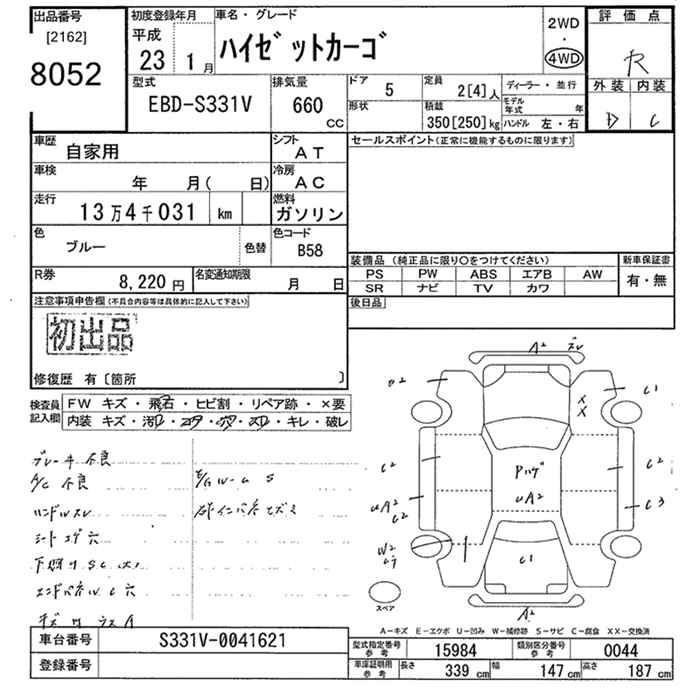 出品番号
[2162]
8052
初度登録年月
平成
23 1月
車名・グレード
ハイゼットカーゴ
2WD
・
4WD
評価点
R
外装 内装
D C
型式
EBD-S331V
排気量
660
CC
ドア 5
形状
定員
2[4]人
積載
350[250]kg
ディーラー・並行
モデル年式 年
ハンドル 左・右
車歴
自家用
シフト
AT
車検
年 月( 日)
冷房
AC
走行
13万4千031 km
燃料
ガソリン
色
ブルー
色替
色コード
B58
R券
8,220円
名変通知期限
月 日
セールスポイント(正常に機能するものに限ります)
装備品 (純正品に限り○をつけてください)
PS PW ABS エアB AW
SR ナビ TV カワ
新車保証書
有・無
後日品
注意事項申告欄(不具合内容等は具体的に記入して下さい)
初出品
修復歴 有〔箇所 〕
検査員記入欄
FW キズ・飛石・ヒビ割・リペア跡・×要
内装 キズ・汚・コゲ・穴・スレ・キレ・破レ
ブレーキ不良
A/C 不良
ハンドルスレ
シートコゲ穴
下廻りSC(大)
エンドパネルC穴
A2
スレ
C1
XX
C2
C2
UA2
C2
C3
W2
Pハゲ
UA2
C1
A2
スペア
A-キズ E-エクボ U-凹み W-補修跡 S-サビ C-腐食 XX-交換済
車台番号
S331V-0041621
登録番号
型式指定番号 参考
15984
類別区分番号 参考
0044
車庫証明用 参考
長さ 339 cm
幅 147 cm
高さ 187 cm